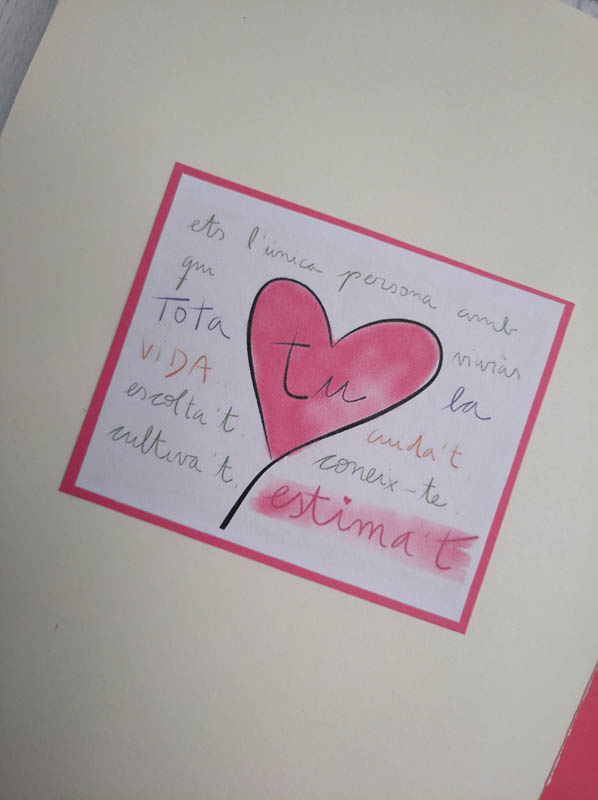 ets l'única persona amb
qui tu viuràs
TOTA la
VIDA... cuida't.
escolta't. coneix-te.
cultiva't. estima't